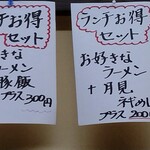 ンチお得
セット
きな
ーメン
豚飯
プラス300円
ランチお得
セット
お好きな
ラーメン
+月見
ネギめし
プラス200